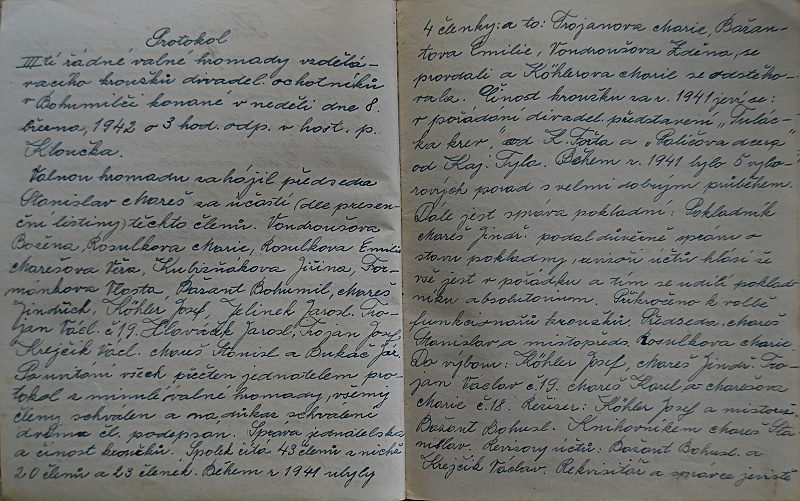 Protokol
III tí řádné valné hromady vzdělá-
vacího kroužku divadel. ochotníků
v Bohumilči konané v neděli dne 8.
března, 1942 o 3 hod. odp. v host. p.
Kloučka.
Valnou hromadu zahájil předseda
Stanislav Mareš za účasti (dle presen-
ční listiny) těchto členů. Vondroušova
Božena, Rosulkova Marie, Rosulkova Emilie
Marešova Věra, Kubizňákova Jiřina, For-
mánkova Vlasta, Bažant Bohumil, Mareš
Jindřich, Köhler Josef, Jelinek Jarosl. Tro-
jan Václ. č 19. Hlaváček Jarosl, Trojan Josef
Krejčik Václ. Mareš Stanisl a Bukač Jar.
Po uvítaní všech přečten jednatelem pro-
tokol z minulé valné hromady, všemi
členy schvalen a na důkaz schvalení
dvěma čl. podepsán. Správa jednatelska
a činost kroužku. Spolek čítá 43 členů z nichž
20 členů a 23 členek. Během r 1941 ubyly
4 členky: a to: Trojanova Marie, Bažan-
tova Emilie, Vondroušova Zděna, se
provdali a Köhlerova Marie se odstěho-
vala. Činost kroužku za r. 1941 jeví se:
v pořádání divadel. představení "Tulác-
ka krev" od K. Fořta a "Paličova dcera"
od Kaj. Tyla. Během r. 1941 bylo 5 výbo-
rových porad s velmi dobrym průběhem.
Dale jest správa pokladní: Pokladník
Mareš Jindř. podal důvěrně správu o
stavu pokladny, revisoři účtů hlásí že
vše jest v pořádku a tím se udílí poklad
níku absolutorium. Přikročeno k volbě
funkcionářů kroužku. Předseda Mareš
Stanislav a místopřed. Rosulkova Marie.
Do výboru: Köhler Josef, Mareš Jindř. Tro-
jan Václav č.19. Mareš Karel a Marešova
Marie č.18. Režiser: Köhler Josef a místorež.
Bažant Bohusl. Knihovníkem Mareš Sta
nislav. Revisory účtů: Bažant Bohusl. a
Krejčik Václav. Rekvisitář a správce jeviště